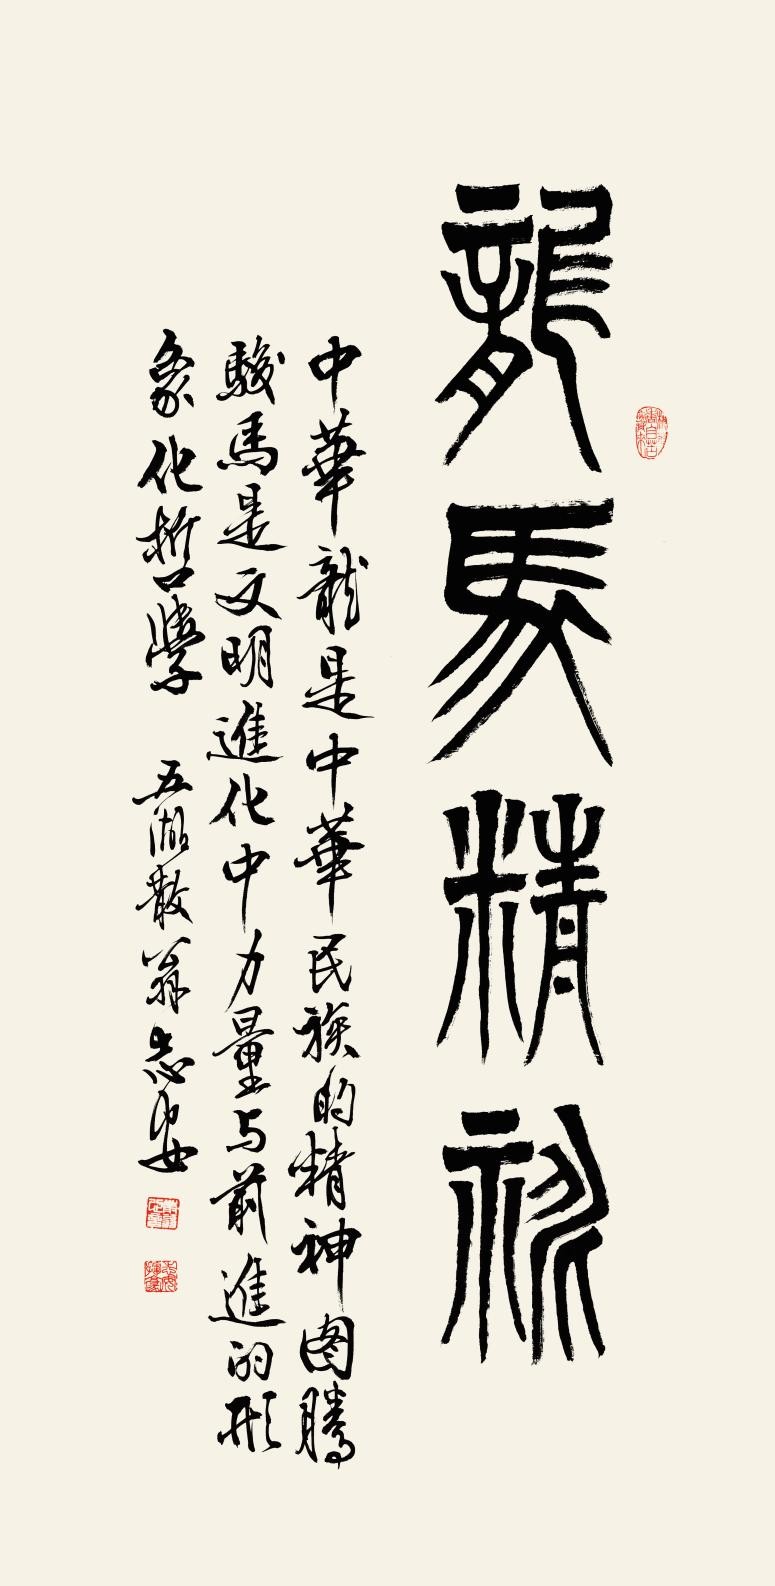 龍馬精神
中華龍是中華民族的精神图騰
駿馬是文明進化中力量与前進的形
象化哲學 五湖散翁志安